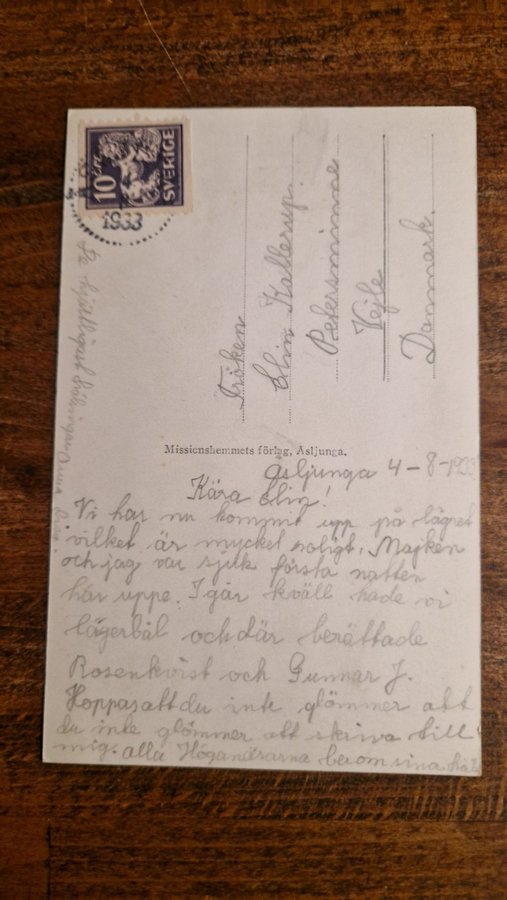 10 ÖRE
SVERIGE
1933
Fröken
Elin Kallerup.
Petersminne
Vejle
Danmark.
Missionshemmets förlag, Åsljunga.
Åsljunga 4-8-1933
Kära Elin!
Vi har nu kommit upp på lägret
vilket är mycket roligt. Majken
och jag var sjuk första natten
här uppe. I går kväll hade vi
lägerbål och där berättade
Rosenkvist och Gunnar J.
Hoppas att du inte glömmer att
du inte glömmer att skriva till
mig. alla Höganäsarna
hjärtligast hälsningar Anna